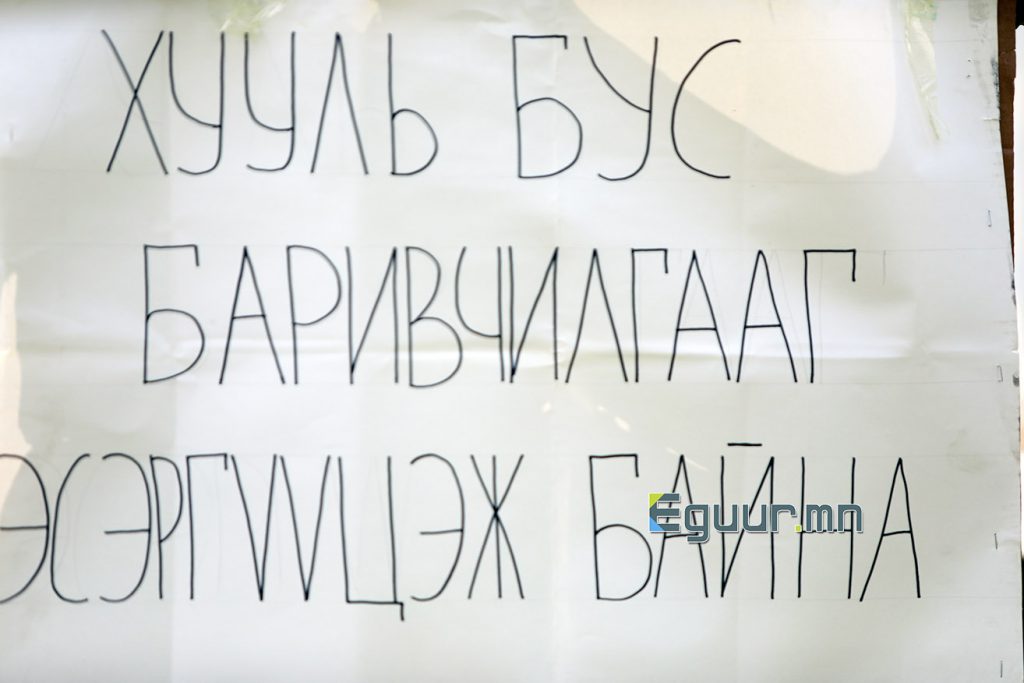 ХУУЛЬ БУС
БАРИВЧИЛГААГ
ЭСЭРГҮҮЦЭЖ БАЙНА
Eguur.mn